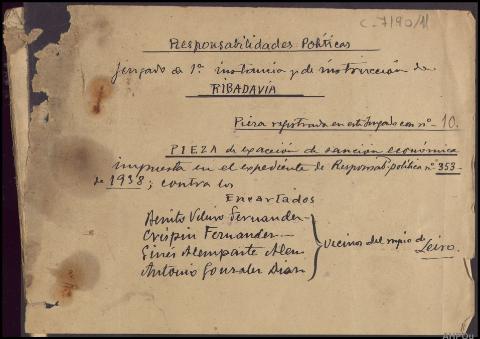 C-7190/11
Responsabilidades Políticas
Juzgado de 1ª instancia y de instrucción de
RIBADAVIA
Pieza registrada en este Juzgado con nº - 10.
PIEZA de exacción de sanción económica
impuesta en el expediente de Responsab. política nº 353-
de 1938; contra los
Encartados
Benito Fernandez
Crispin Fernandez
Gines Alemparte
Antonio Gonzalez Dias
Vecinos del mpio de
Leiro.